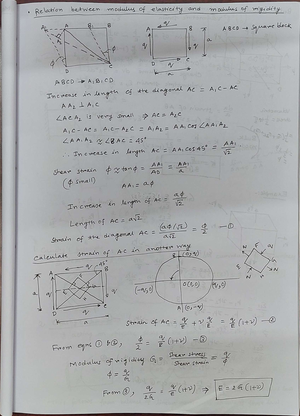 Relation between modulus of elasticity and modulus of rigidity
ABCD → Square block
ABCD → A₁B₁CD
Increase in length of the diagonal AC = A₁C - AC
AA₂ ⊥ A₁C
∠ACA₂ is very small ⇒ AC = A₂C
A₁C - AC = A₁C - A₂C = A₁A₂ = AA₁ cos∠AA₁A₂
∠AA₁A₂ ≈ ∠BAC = 45°
∴ Increase in length AC = AA₁ cos45° = AA₁/√2
Shear strain φ ≈ tanφ = AA₁/AD = AA₁/a
(φ small)
AA₁ = aφ
Increase in length of AC = aφ/√2
Length of AC = a√2
Strain of the diagonal AC = (aφ/√2)/a√2 = φ/2 — ①
Calculate strain of AC in another way
B (0,q)
(-q,0) O(0,0) (q,0)
A (0,-q)
Strain of AC = q/E + ν q/E = q/E (1+ν) — ②
From eqns ① & ②, φ/2 = q/E (1+ν) — ③
Modulus of rigidity G = Shear stress/Shear strain = q/φ
φ = q/G
From ③, q/2G = q/E (1+ν) ⇒ E = 2G(1+ν)